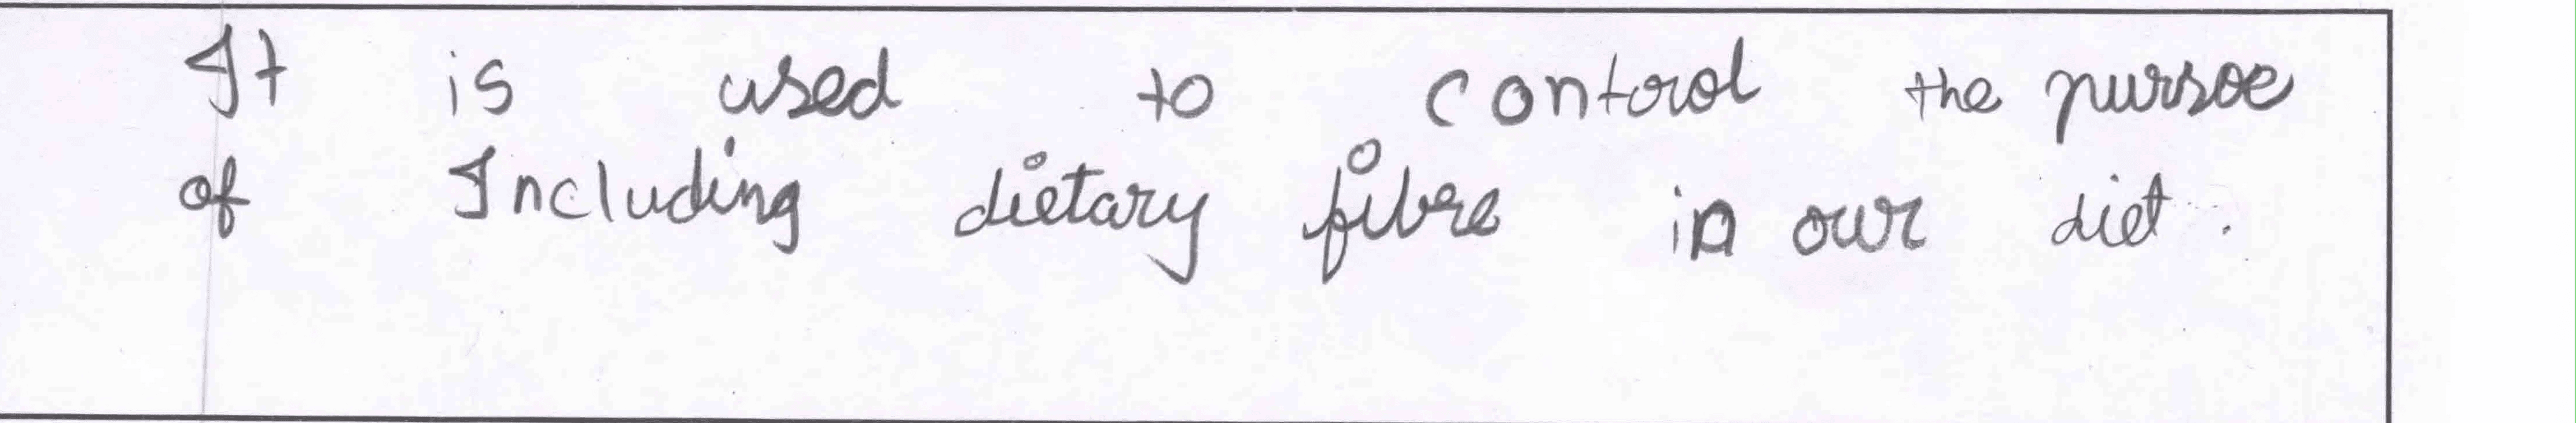 It is used to control the pursoe
of Including dietary fibre in our diet.